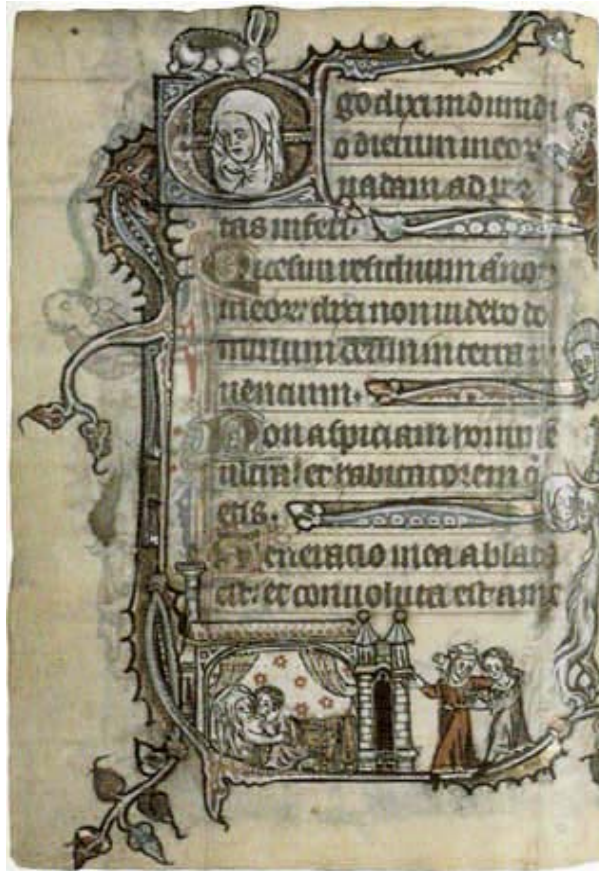 Ego dixi in dimidi
o dierum meor
uadam ad por
tas inferi.
Quesiui residuum annor
meor. dixi non uidebo do
minum deum in terra ui
uencium.
Non aspiciam homine
ultra et habitatorem q
etis.
Generacio mea ablata
est. et conuoluta est a me